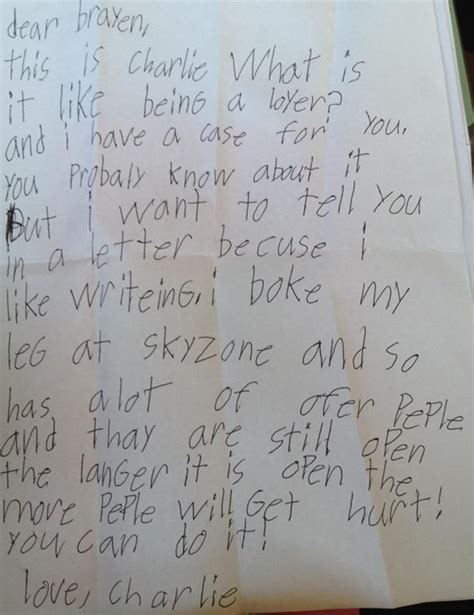 dear brayen,
this is Charlie What is
it like being a loyer?
and i have a case for you.
you Probaly know about it
But i want to tell you
in a letter becuse i
like writeing. i boke my
leg at skyzone and so
has alot of ofer PePle
and thay are still open
the langer it is open the
more PePle will get hurt!
you can do it!
love, charlie